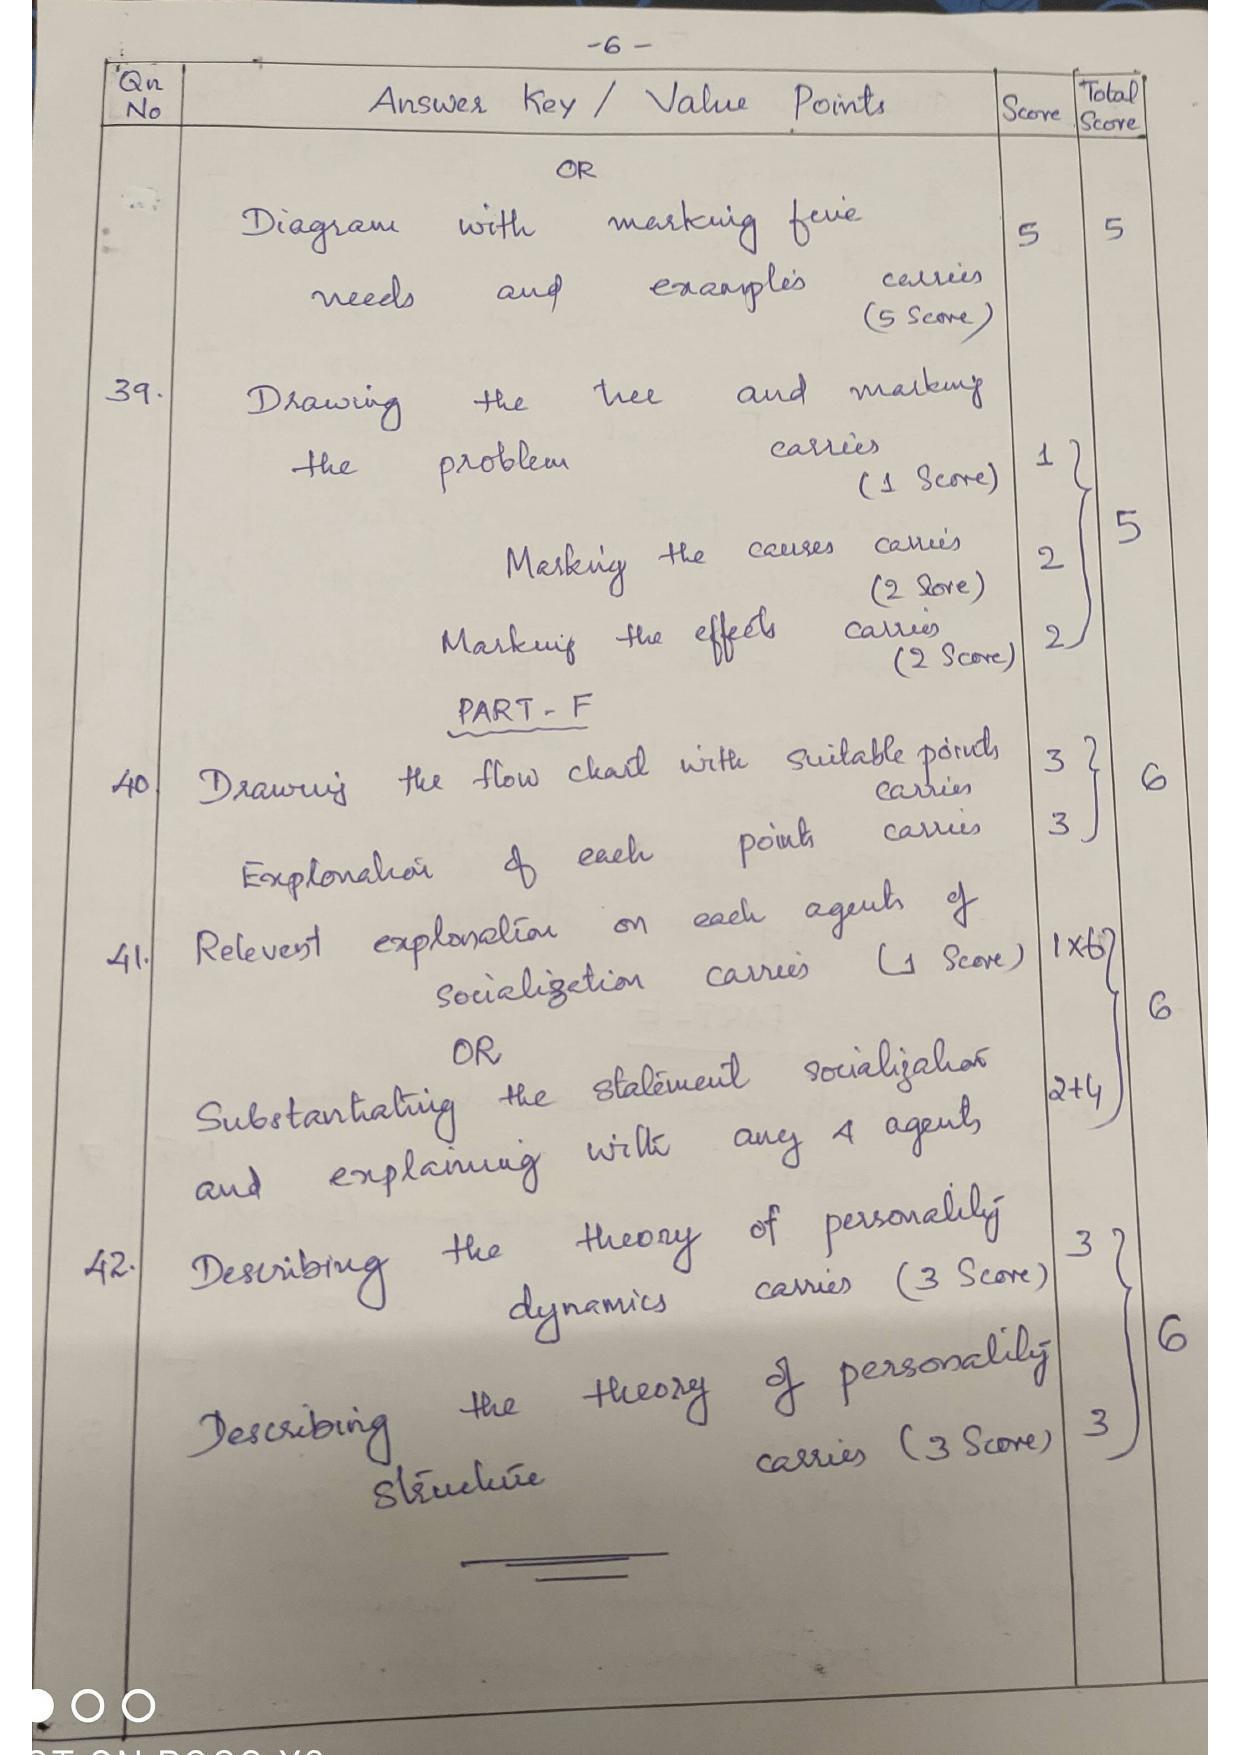 -6-
Qn No
Answer Key / Value Points
Score
Total Score
OR
Diagram with marking five
needs and examples carries
(5 Score)
5
5
39.
Drawing the tree and marking
the problem carries
(1 Score)
1
Marking the causes carries
(2 Score)
2
Marking the effects carries
(2 Score)
2
5
PART - F
40
Drawing the flow chart with suitable points
carries
3
Explonation of each points carries
3
6
41.
Relevent explonation on each agents of
socialization carries (1 Score)
1x6
OR
Substantiating the statement socialization
and explaining with any 4 agents
2+4
6
42.
Describing the theory of personality
dynamics carries (3 Score)
3
Describing the theory of personality
structure carries (3 Score)
3
6